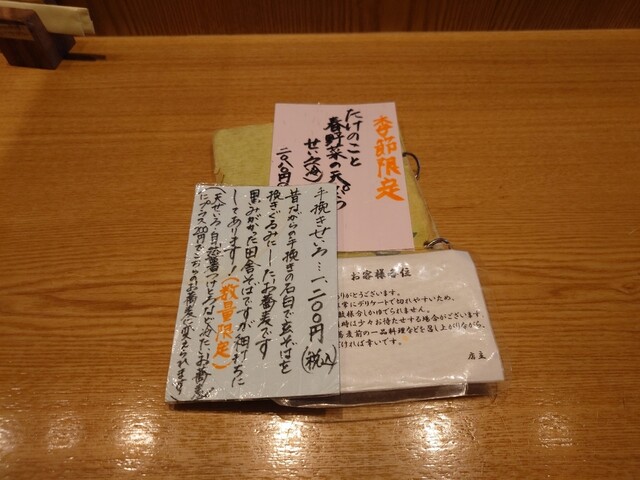 季節限定
たけのこと
春野菜の天ぷら
せいろ
手挽きせいろ…一、二〇〇円(税込)
昔ながらの手挽きの石臼で玄そばを
挽きぐるみにしたお蕎麦です
黒みがかった田舎そばですが細打ちに
してあります!(数量限定)
(天せいろ・自然薯つけとろなど冷たいお蕎麦が
プラス200円でこちらのお蕎麦に変えられます)
お客様各位
ありがとうございます。
常にデリケートで切れやすいため、
数様分しかゆでられません。
時は少々お待たせする場合がございます
蕎麦前の一品料理などを召し上がりながら、
だければ幸いです。
店主